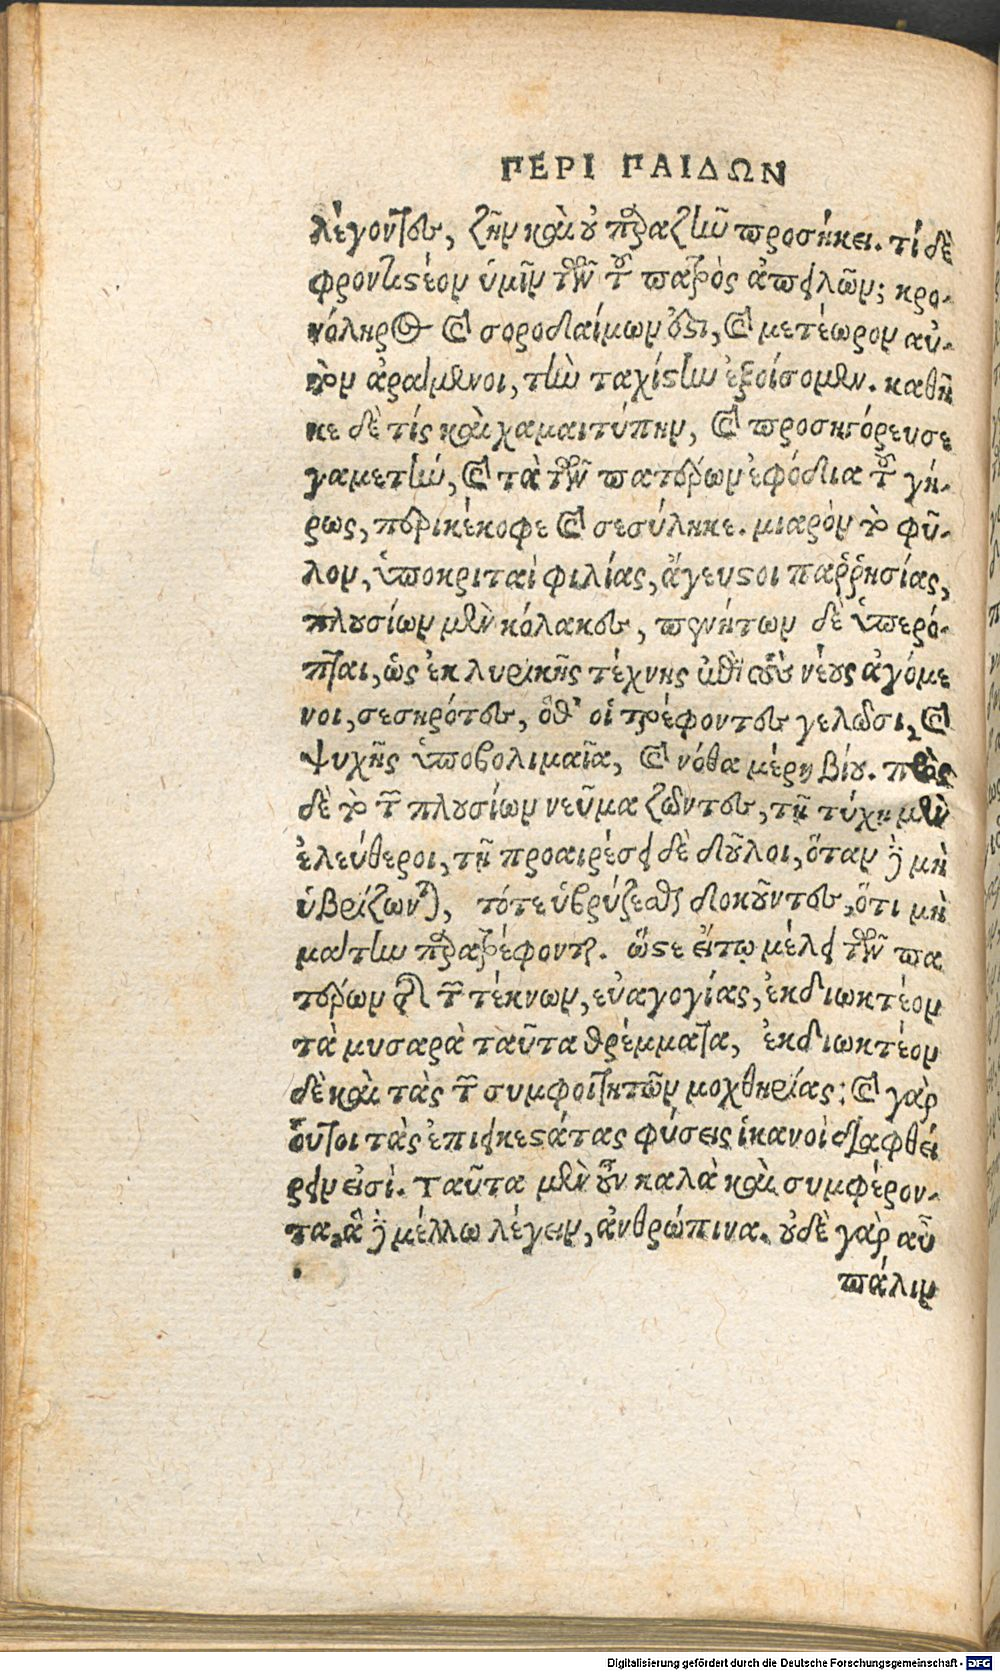 ΠΕΡΙ ΠΑΙΔΩΝ
λέγοντες, ζῆν καὶ οὐ παραζῆν προσήκει. τί δὲ
φροντιστέον ὑμῖν τῶν τοῦ πατρὸς ἀπειλῶν; κρο-
νόληρος καὶ σοροδαίμων ἐστι, καὶ μετέωρον αὐ-
τὸν ἀράμενοι, τὴν ταχίστην ἐξοίσομεν. καθῆ
κε δὲ τίς καὶ χαμαιτύπην, καὶ προσηγόρευσε
γαμετὴν, καὶ τὰ τῶν πατέρων ἐφόδια τοῦ γή-
ρως, περικέκοφε καὶ σεσύληκε. μιαρὸν τὸ φῦ-
λον, ὑποκριταὶ φιλίας, ἄγευστοι παῤῥησίας,
πλουσίων μὲν κόλακες, πενήτων δὲ ὑπερό-
πται, ὡς ἐκ λυρικῆς τέχνης ἐπὶ τοὺς νέους ἀγόμε
νοι, σεσηρότες, ὅθ' οἱ τρέφοντες γελῶσι, καὶ
ψυχῆς ὑποβολιμαῖα, καὶ νόθα μέρη βίου. πρὸς
δὲ τὸ τῶν πλουσίων νεῦμα ζῶντες, τῇ τύχῃ μὲν
ἐλεύθεροι, τῇ προαιρέσει δὲ δοῦλοι, ὅταν δὲ μὴ
ὑβρίζωνται, τότε ὑβρίζεσθαι δοκοῦντες, ὅτι μὴ
μάτην παρατρέφονται. ὥστε εἴ τῳ μέλει τῶν πα
τέρων τῆς τῶν τέκνων, εὐαγογίας, ἐκδιωκτέον
τὰ μυσαρὰ ταῦτα θρέμματα, ἐκδιωκτέον
δὲ καὶ τὰς τῶν συμφοιτητῶν μοχθηρίας: καὶ γὰρ
οὗτοι τὰς ἐπιεικεστάτας φύσεις ἱκανοὶ διαφθεί
ρειν εἰσί. ταῦτα μὲν οὖν καλὰ καὶ συμφέρον-
τα, ἃ δὲ μέλλω λέγειν, ἀνθρώπινα. οὐδὲ γὰρ αὖ
πάλιν
Digitalisierung gefördert durch die Deutsche Forschungsgemeinschaft - DFG